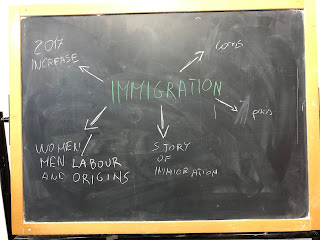 2017
INCREASE
cons
IMMIGRATION
pros
WOMEN
MEN LABOUR
AND ORIGINS
STORY
OF
IMMIGRATION